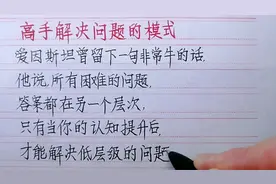 高手解决问题的模式
爱因斯坦曾留下一句非常牛的话.
他说,所有困难的问题,
答案都在另一个层次,
只有当你的认知提升后,
才能解决低层级的问题